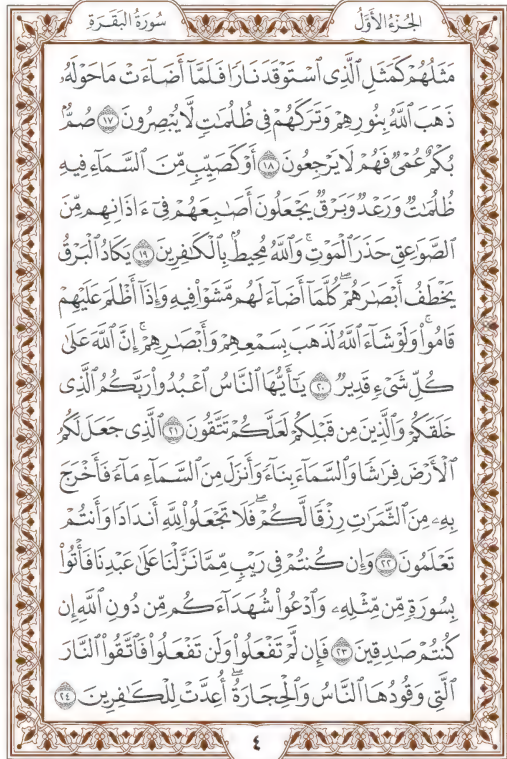 الجُزْءُ الأَوَّلُ سُورَةُ البَقَرَةِ
مَثَلُهُمْ كَمَثَلِ ٱلَّذِى ٱسْتَوْقَدَ نَارًا فَلَمَّآ أَضَآءَتْ مَا حَوْلَهُۥ
ذَهَبَ ٱللَّهُ بِنُورِهِمْ وَتَرَكَهُمْ فِى ظُلُمَٰتٍ لَّا يُبْصِرُونَ ١٧ صُمٌّۢ
بُكْمٌ عُمْىٌ فَهُمْ لَا يَرْجِعُونَ ١٨ أَوْ كَصَيِّبٍ مِّنَ ٱلسَّمَآءِ فِيهِ
ظُلُمَٰتٌ وَرَعْدٌ وَبَرْقٌ يَجْعَلُونَ أَصَٰبِعَهُمْ فِىٓ ءَاذَانِهِم مِّنَ
ٱلصَّوَٰعِقِ حَذَرَ ٱلْمَوْتِ ۚ وَٱللَّهُ مُحِيطٌۢ بِٱلْكَٰفِرِينَ ١٩ يَكَادُ ٱلْبَرْقُ
يَخْطَفُ أَبْصَٰرَهُمْ ۖ كُلَّمَآ أَضَآءَ لَهُم مَّشَوْا۟ فِيهِ وَإِذَآ أَظْلَمَ عَلَيْهِمْ
قَامُوا۟ ۚ وَلَوْ شَآءَ ٱللَّهُ لَذَهَبَ بِسَمْعِهِمْ وَأَبْصَٰرِهِمْ ۚ إِنَّ ٱللَّهَ عَلَىٰ
كُلِّ شَىْءٍ قَدِيرٌ ٢٠ يَٰٓأَيُّهَا ٱلنَّاسُ ٱعْبُدُوا۟ رَبَّكُمُ ٱلَّذِى
خَلَقَكُمْ وَٱلَّذِينَ مِن قَبْلِكُمْ لَعَلَّكُمْ تَتَّقُونَ ٢١ ٱلَّذِى جَعَلَ لَكُمُ
ٱلْأَرْضَ فِرَٰشًا وَٱلسَّمَآءَ بِنَآءً وَأَنزَلَ مِنَ ٱلسَّمَآءِ مَآءً فَأَخْرَجَ
بِهِۦ مِنَ ٱلثَّمَرَٰتِ رِزْقًا لَّكُمْ ۖ فَلَا تَجْعَلُوا۟ لِلَّهِ أَندَادًا وَأَنتُمْ
تَعْلَمُونَ ٢٢ وَإِن كُنتُمْ فِى رَيْبٍ مِّمَّا نَزَّلْنَا عَلَىٰ عَبْدِنَا فَأْتُوا۟
بِسُورَةٍ مِّن مِّثْلِهِۦ وَٱدْعُوا۟ شُهَدَآءَكُم مِّن دُونِ ٱللَّهِ إِن
كُنتُمْ صَٰدِقِينَ ٢٣ فَإِن لَّمْ تَفْعَلُوا۟ وَلَن تَفْعَلُوا۟ فَٱتَّقُوا۟ ٱلنَّارَ
ٱلَّتِى وَقُودُهَا ٱلنَّاسُ وَٱلْحِجَارَةُ ۖ أُعِدَّتْ لِلْكَٰفِرِينَ ٢٤
٤